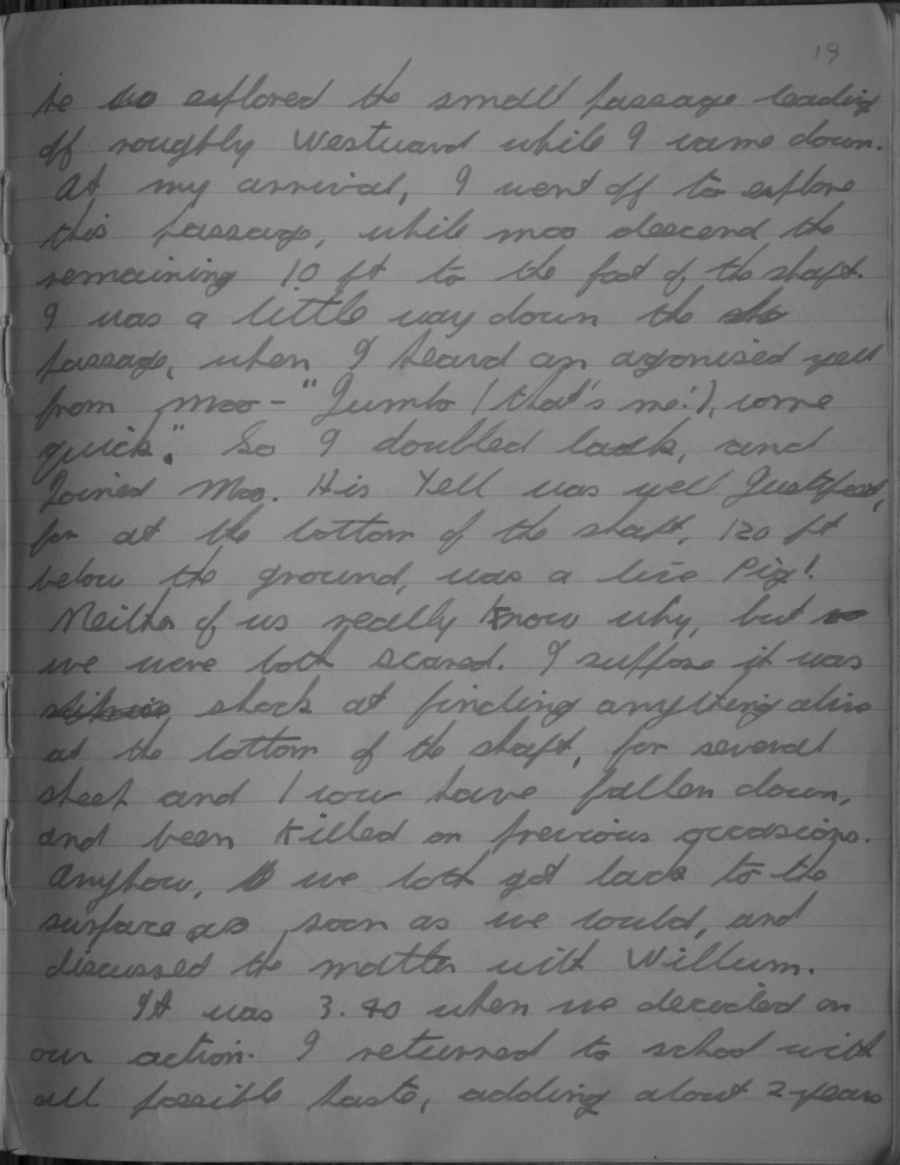 19
he so explored the small passage leading
off roughly Westward while I came down.
At my arrival, I went off to explore
this passage, while Moo descend the
remaining 10 ft to the foot of the shaft.
I was a little way down the sha
passage, when I heard an agonised yell
from Moo - "Jumbo (that's me!), come
quick". So I doubled back, and
Joined Moo. His Yell was well Justified,
for at the bottom of the shaft, 120 ft
below the ground, was a live Pig!
Neither of us really know why, but
we were both scared. I suppose it was
shock at finding anything alive
at the bottom of the shaft, for several
sheep and 1 cow have fallen down,
and been killed on previous occasions.
Anyhow, we both got back to the
surface as soon as we could, and
discussed the matter with Willum.
It was 3.40 when we decided on
our action. I returned to school with
all possible haste, adding about 2 years